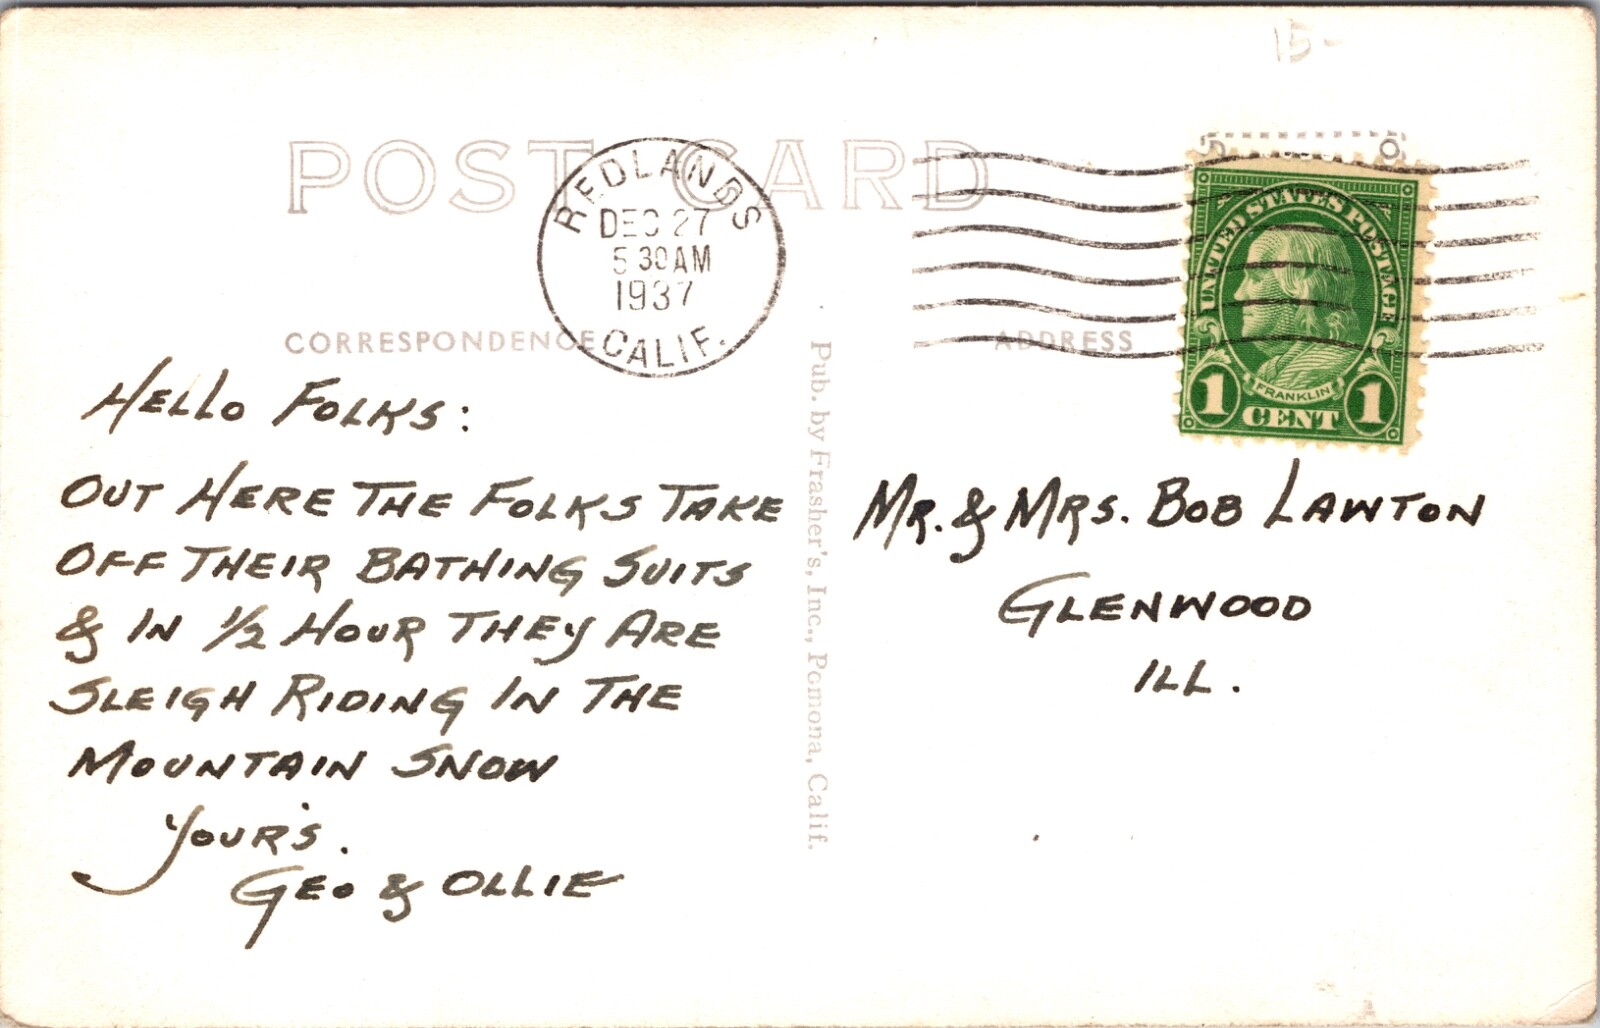 15-
POST CARD
REDLANDS
DEC 27
5 30 AM
1937
CALIF.
UNITED STATES POSTAGE
FRANKLIN
1 CENT 1
CORRESPONDENCE
ADDRESS
HELLO FOLKS:
OUT HERE THE FOLKS TAKE
OFF THEIR BATHING SUITS
& IN 1/2 HOUR THEY ARE
SLEIGH RIDING IN THE
MOUNTAIN SNOW
YOUR'S.
GEO & OLLIE
Pub. by Frasher's, Inc., Pomona, Calif.
MR. & MRS. BOB LAWTON
GLENWOOD
ILL.